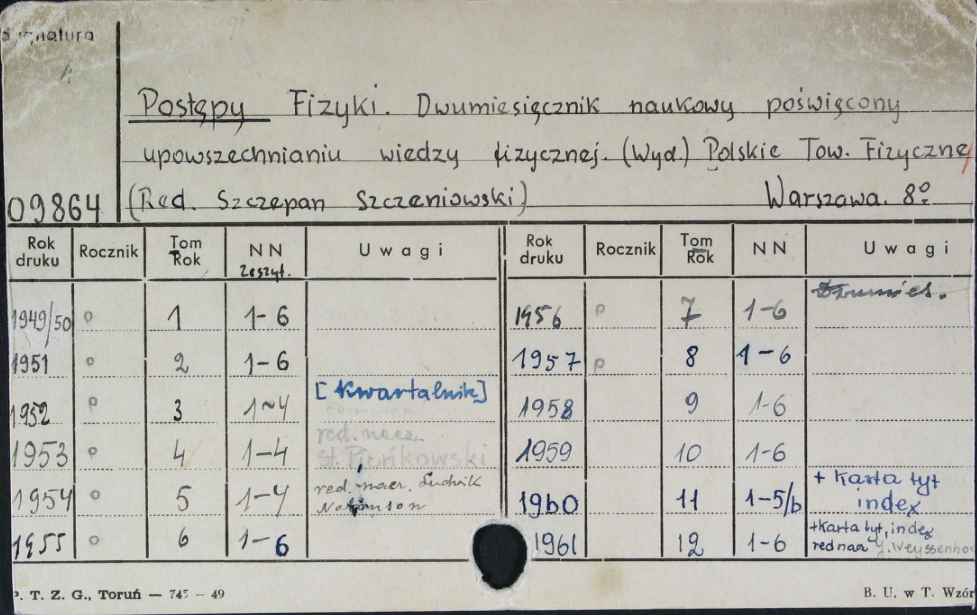 Sygnatura
Postępy Fizyki. Dwumiesięcznik naukowy poświęcony
upowszechnianiu wiedzy fizycznej. (Wyd.) Polskie Tow. Fizyczne
09864 (Red. Szczepan Szczeniowski) Warszawa. 8º
Rok druku Rocznik Tom Rok NN zeszyt. Uwagi Rok druku Rocznik Tom Rok NN Uwagi
1949/50 o 1 1-6 1956 p 7 1-6 Dwumies.
1951 o 2 1-6 1957 p 8 1-6
1952 p 3 1-4 [Kwartalnik] 1958 9 1-6
1953 o 4 1-4 red. nacz. St. Pieńkowski 1959 10 1-6
1954 o 5 1-4 red. nacz. Ludwik 1960 11 1-5/6 + Karta tyt index
1955 o 6 1-6 1961 12 1-6 + Karta tyt, index red nacz J. Weyssenhoff
P. T. Z. G., Toruń — 745 - 49 B. U. w T. Wzór